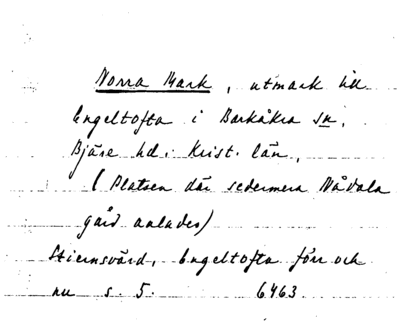 Norra Mark, utmark till
Engeltofta i Barkåkra sn,
Bjäre hd. Krist. län,
(Platsen där sedermera Nådala
gård anlades)
Stiernsvärd, Engeltofta förr och
nu s. 5. 6463